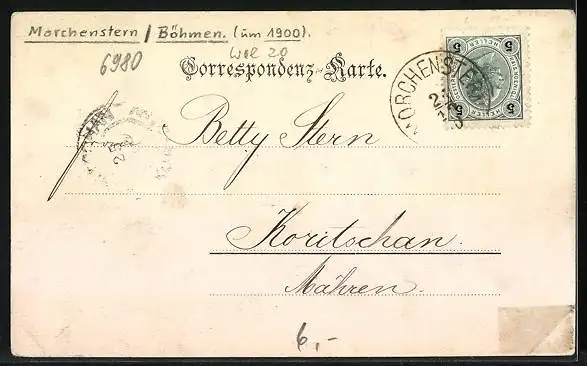 Morchenstern / Böhmen. (um 1900).
6980
Correspondenz-Karte.
MORCHENSTERN
5 5
HELLER
5 5
Betty Stern
Koritschan.
Mähren.
6,-